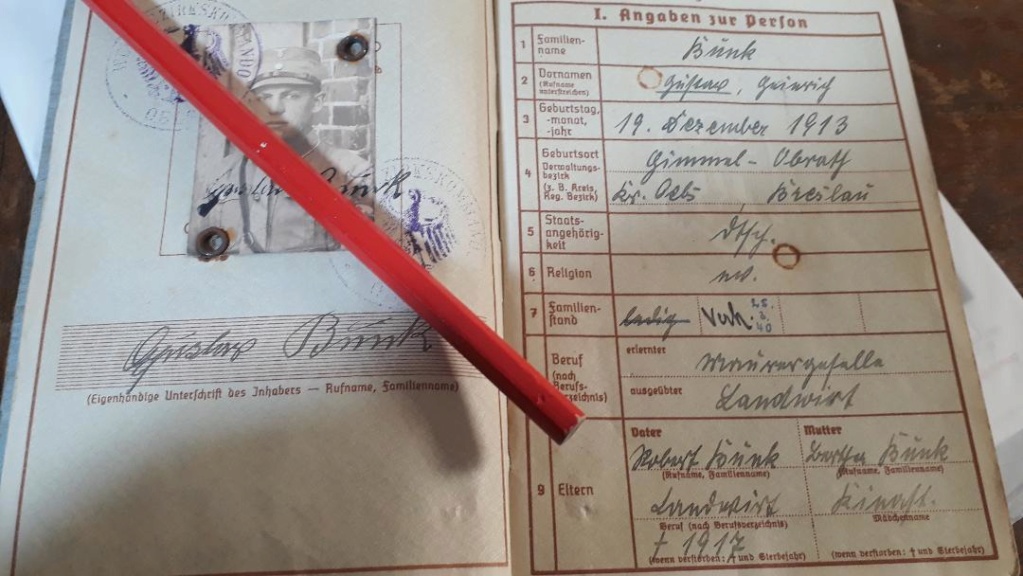 Gustav Bunk
Gustav Bunk
(Eigenhändige Unterschrift des Inhabers — Rufname, Familienname)
I. Angaben zur Person
1 Familien-
name
Bunk
2 Vornamen
(Rufname
unterstreichen)
Gustav, Heinrich
3 Geburtstag,
-monat,
-jahr
19. Dezember 1913
4 Geburtsort
Verwaltungs-
bezirk
(z. B. Kreis,
Reg. Bezirk)
Gimmel - Obrath
Kr. Oels, Breslau
5 Staats-
angehörig-
keit
dtsch.
6 Religion
ev.
7 Familien-
stand
ledig Verh. 25.
3.
40
Beruf
(nach
Berufs-
verzeichnis)
erlernter
Maurergeselle
ausgeübter
Landwirt
9 Eltern
Vater
Robert Bunk
(Rufname, Familienname)
Landwirt
Beruf (nach Berufsverzeichnis)
† 1917
(wenn verstorben: † und Sterbejahr)
Mutter
Bertha Bunk
(Rufname, Familienname)
Kinast.
Mädchenname
(wenn verstorben: † und Sterbejahr)